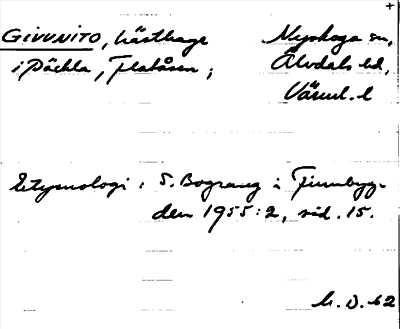 GIVUNITO, hästhage
i Päckla, Flatåsen;
Nyskoga sn,
Älvdals hd,
Värml. l
Etymologi: S. Bograng i Finnbyg-
den 1955:2, sid. 15.